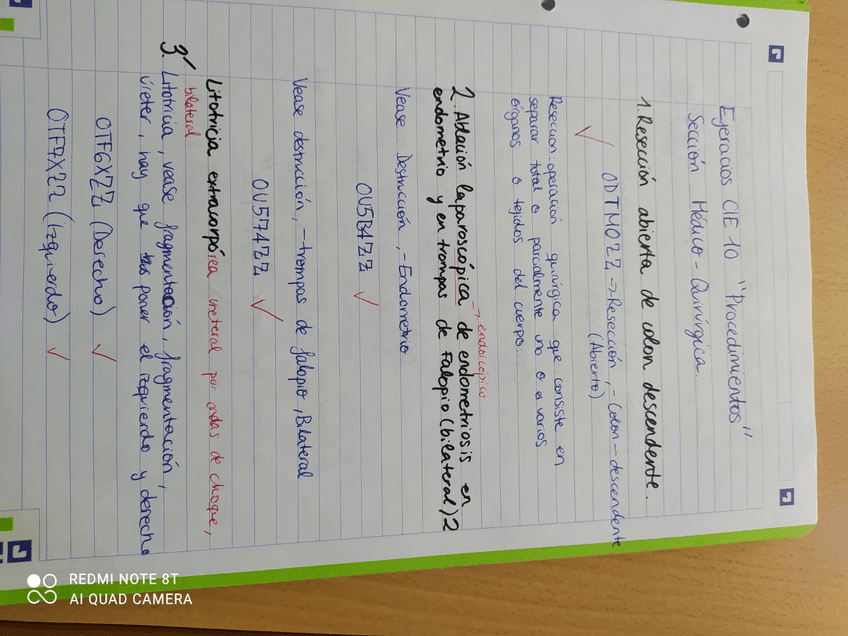 Ejercicios CIE 10 "Procedimientos"
Sección Médico-Quirúrgica.
1. Resección abierta de colon descendente.
0DTM0ZZ → Resección, - Colon - descendente
(Abierto)
✓
Resección: operación quirúrgica que consiste en
separar total o parcialmente uno o varios
órganos o tejidos del cuerpo.
→ endoscópico
2. Ablación laparoscópica de endometriosis en
endometrio y en trompas de Falopio (bilateral) 2
Vease Destrucción, - Endometrio
0U5B4ZZ ✓
Vease destrucción, - trompas de falopio, Bilateral
0U574ZZ ✓
Litotricia extracorpórea ureteral por ondas de choque,
bilateral
3. Litotricia, vease fragmentación, fragmentación,
Úreter, hay que poner el izquierdo y derecho
0TF6XZZ (Derecho) ✓
0TF7XZZ (Izquierdo) ✓
REDMI NOTE 8T
AI QUAD CAMERA